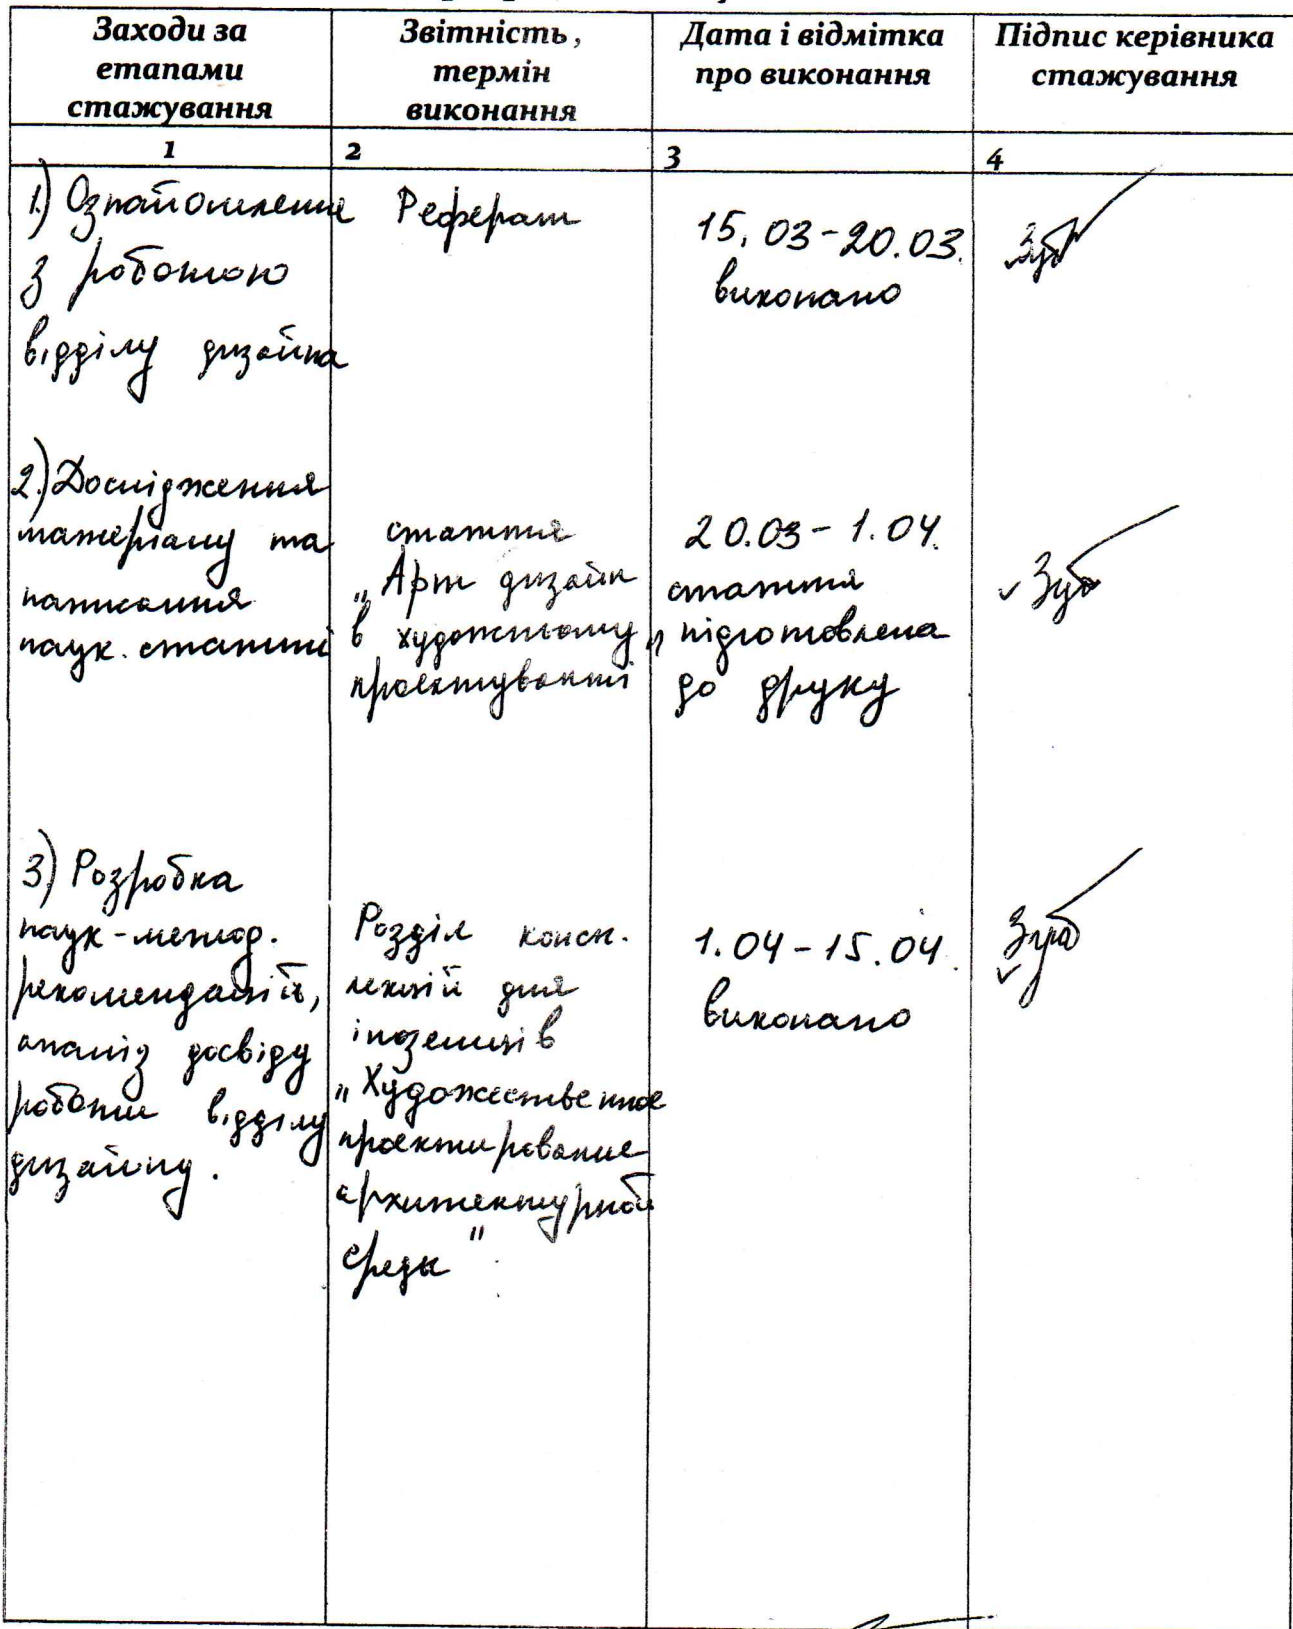 Заходи за
етапами
стажування
Звітність,
термін
виконання
Дата і відмітка
про виконання
Підпис керівника
стажування
1
2
3
4
1.) Ознайомлення
з роботою
відділу дизайна
Реферат
15.03-20.03.
виконано
2.) Дослідження
матеріалу та
написання
наук. статті
стаття
„Арт дизайн
в художньому
проектуванні"
20.03-1.04.
стаття
підготовлена
до друку
3) Розробка
наук-метод.
рекомендацій,
аналіз досвіду
роботи відділу
дизайну.
Розділ консп.
лекцій для
іноземців
„Художественное
проектирование
архитектурной
среды".
1.04-15.04.
виконано